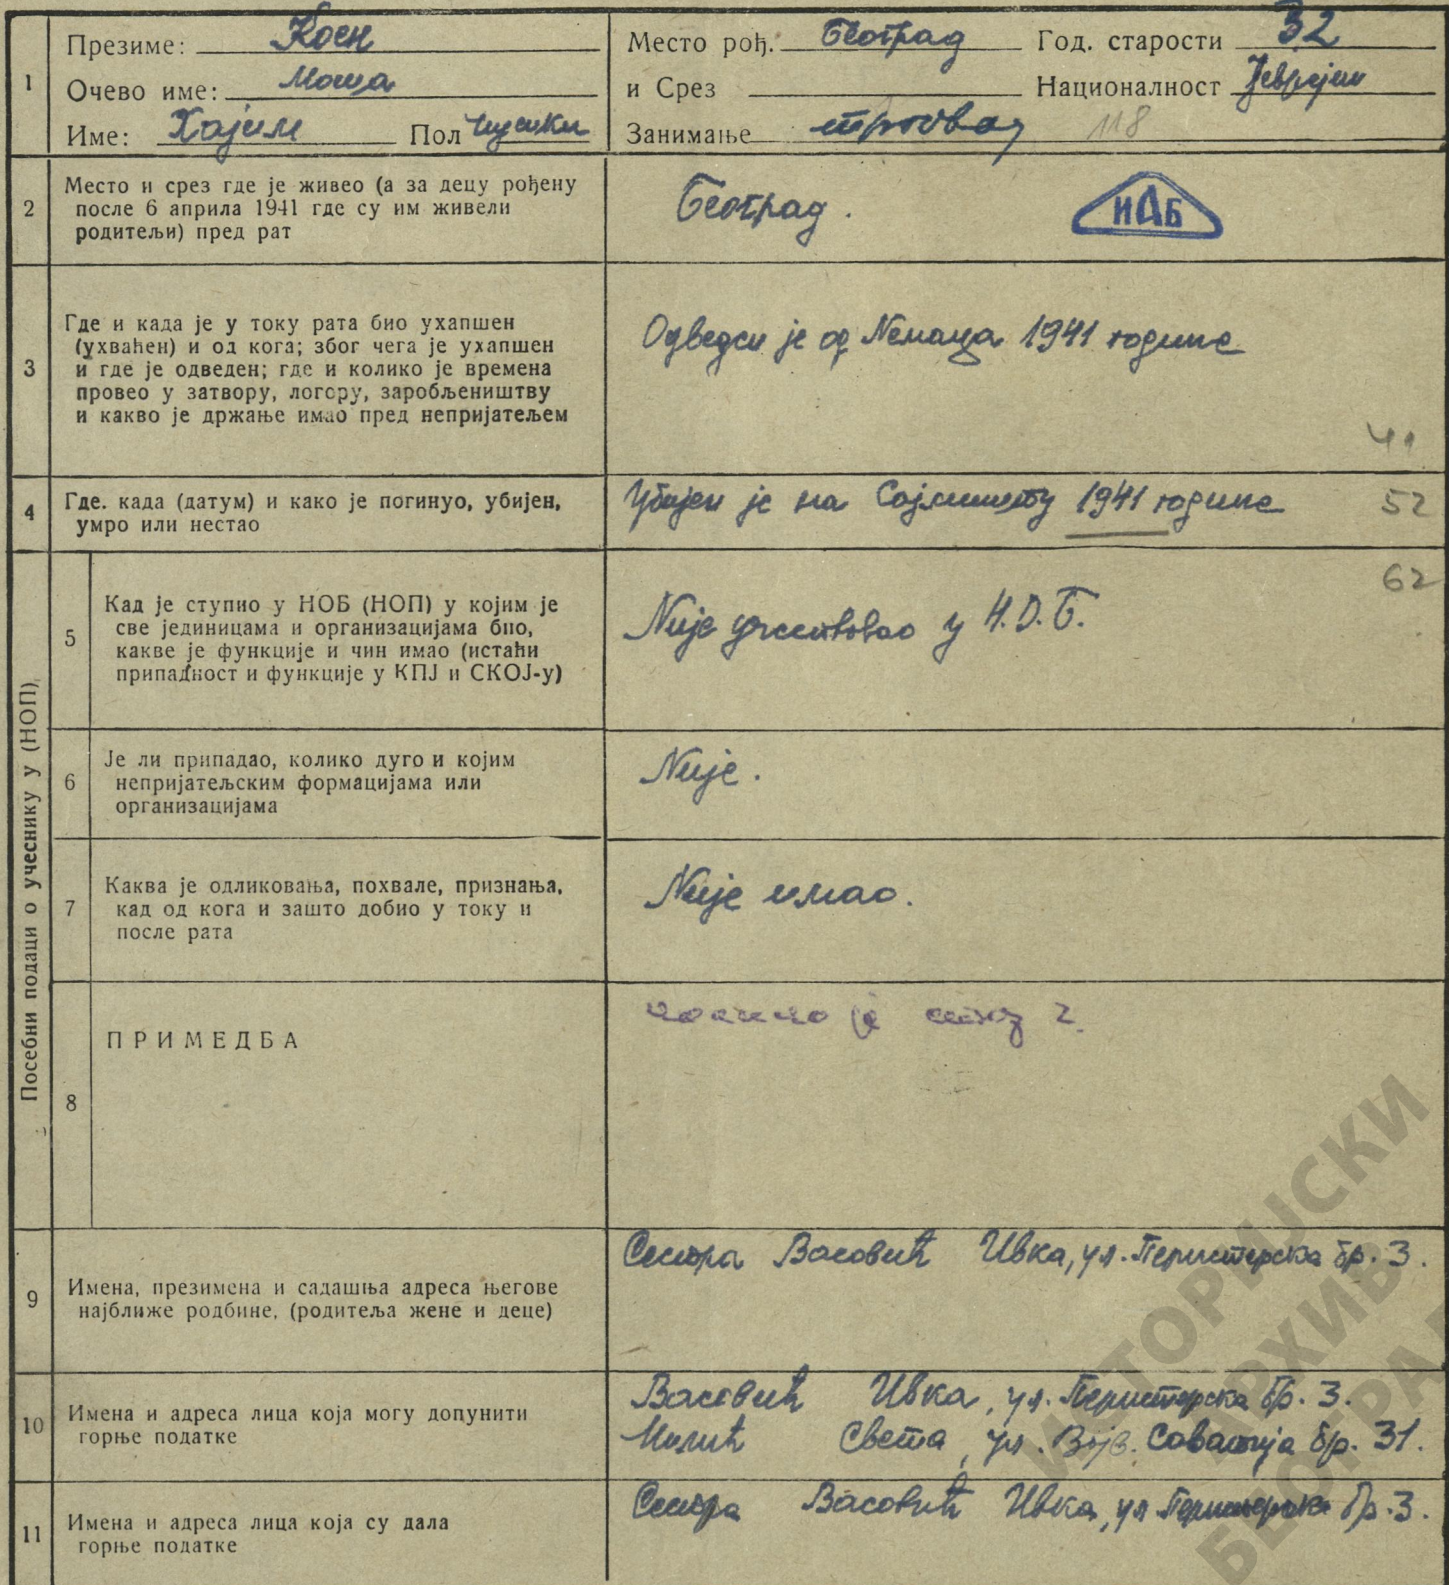 1 Презиме: Коен Место рођ. Београд Год. старости 32
Очево име: Моша и Срез Националност Јеврејин
Име: Хајим Пол мушки Занимање трговац 118
2 Место и срез где је живео (а за децу рођену
после 6 априла 1941 где су им живели
родитељи) пред рат
Београд.
ИАБ
3 Где и када је у току рата био ухапшен
(ухваћен) и од кога; због чега је ухапшен
и где је одведен; где и колико је времена
провео у затвору, логору, заробљеништву
и какво је држање имао пред непријатељем
Одведен је од Немаца 1941 године
41
4 Где. када (датум) и како је погинуо, убијен,
умро или нестао
Убијен је на Сајмишту 1941 године 52
Посебни подаци о учеснику у (НОП)
5 Кад је ступио у НОБ (НОП) у којим је
све јединицама и организацијама био,
какве је функције и чин имао (истаћи
припадност и функције у КПЈ и СКОЈ-у)
62
Није учествовао у Н.О.Б.
6 Је ли припадао, колико дуго и којим
непријатељским формацијама или
организацијама
Није.
7 Каква је одликовања, похвале, признања,
кад од кога и зашто добио у току и
после рата
Није имао.
8 ПРИМЕДБА
је
9 Имена, презимена и садашња адреса његове
најближе родбине, (родитеља жене и деце)
Сестра Васовић Ивка, ул. Перистерска бр. 3.
10 Имена и адреса лица која могу допунити
горње податке
Васовић Ивка, ул. Перистерска бр. 3.
Милић Света, ул. Војв. Саватија бр. 31.
11 Имена и адреса лица која су дала
горње податке
Сестра Васовић Ивка, ул Перистерска бр. 3.
ИСТОРИЈСКИ
АРХИВ
БЕОГРА